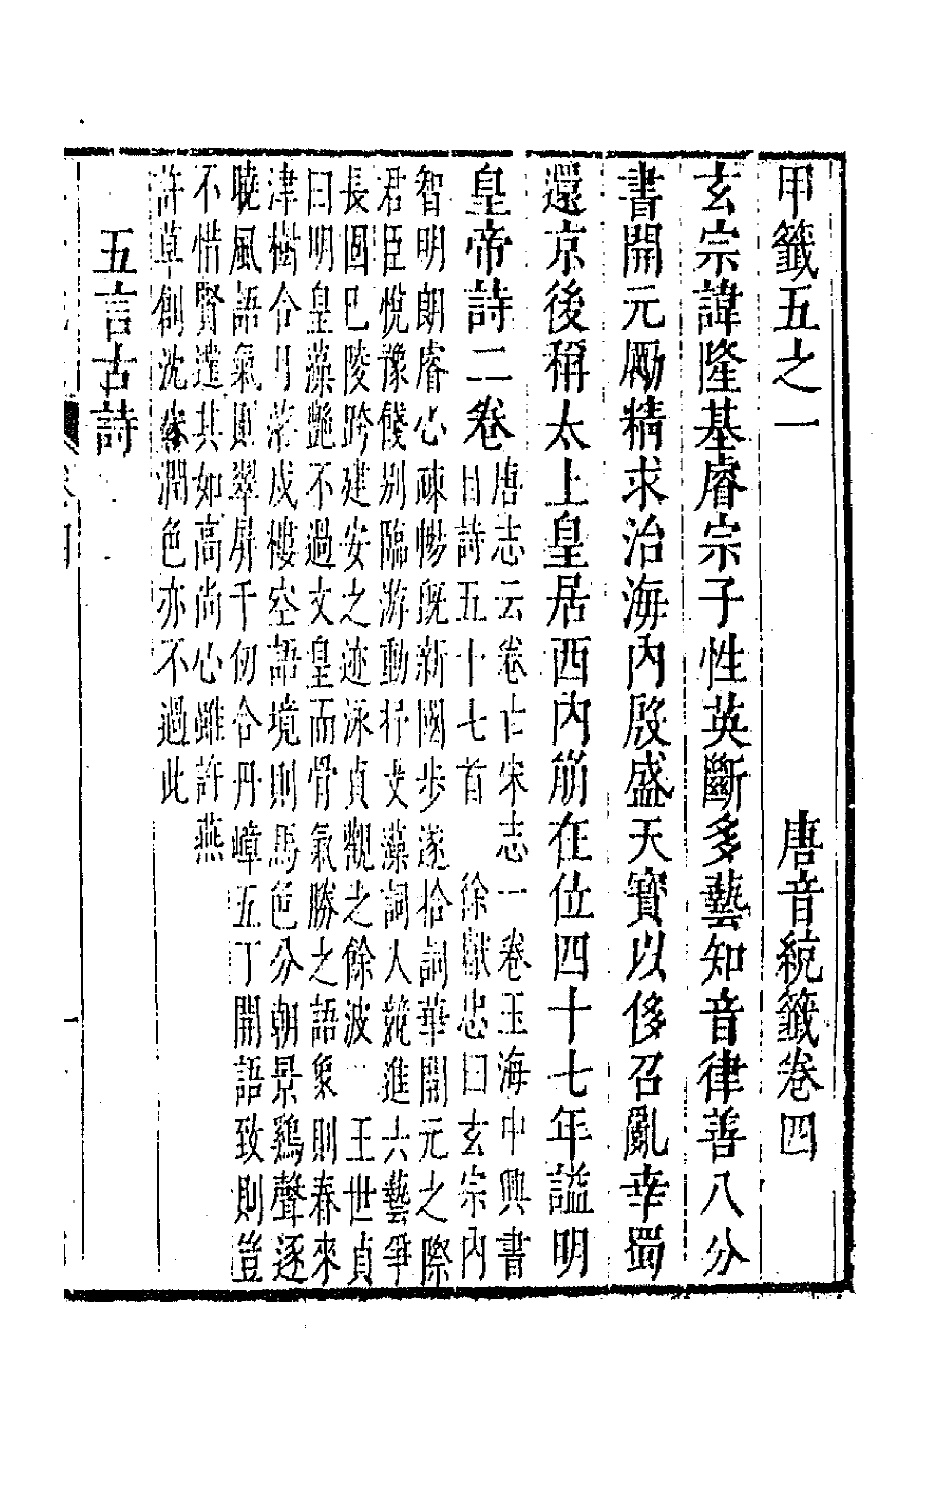 甲籤五之一　唐音統籤卷四
玄宗諱隆基睿宗子性英斷多藝知音律善八分
書開元勵精求治海內殷盛天寶以侈召亂幸蜀
還京後稱太上皇居西內崩在位四十七年謚明
皇帝詩二卷
唐志云卷亡宋志一卷玉海中興書
目詩五十七首　徐獻忠曰玄宗內
智明朗睿心疎暢旣新國步遂拾詞華開元之際
君臣悅豫餞別臨游動抒文藻詞人競進六藝爭
長固已陵跨建安之迹泳貞觀之餘波　王世貞
曰明皇藻艷不過文皇而骨氣勝之語象則春來
津樹合月落戍樓空語境則馬色分朝景鷄聲逐
曉風語氣則翠屏千仞合丹嶂五丁開語致則豈
不惜賢達其如高尚心雖許燕
許草創沈宋潤色亦不過此
五言古詩